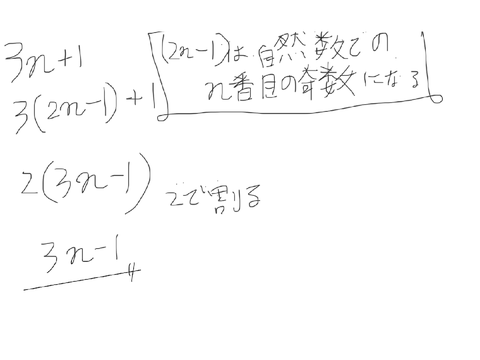 3n+1
3(2n-1)+1
(2n-1)は自然数での
n番目の奇数になる
2(3n-1) 2で割る
3n-1